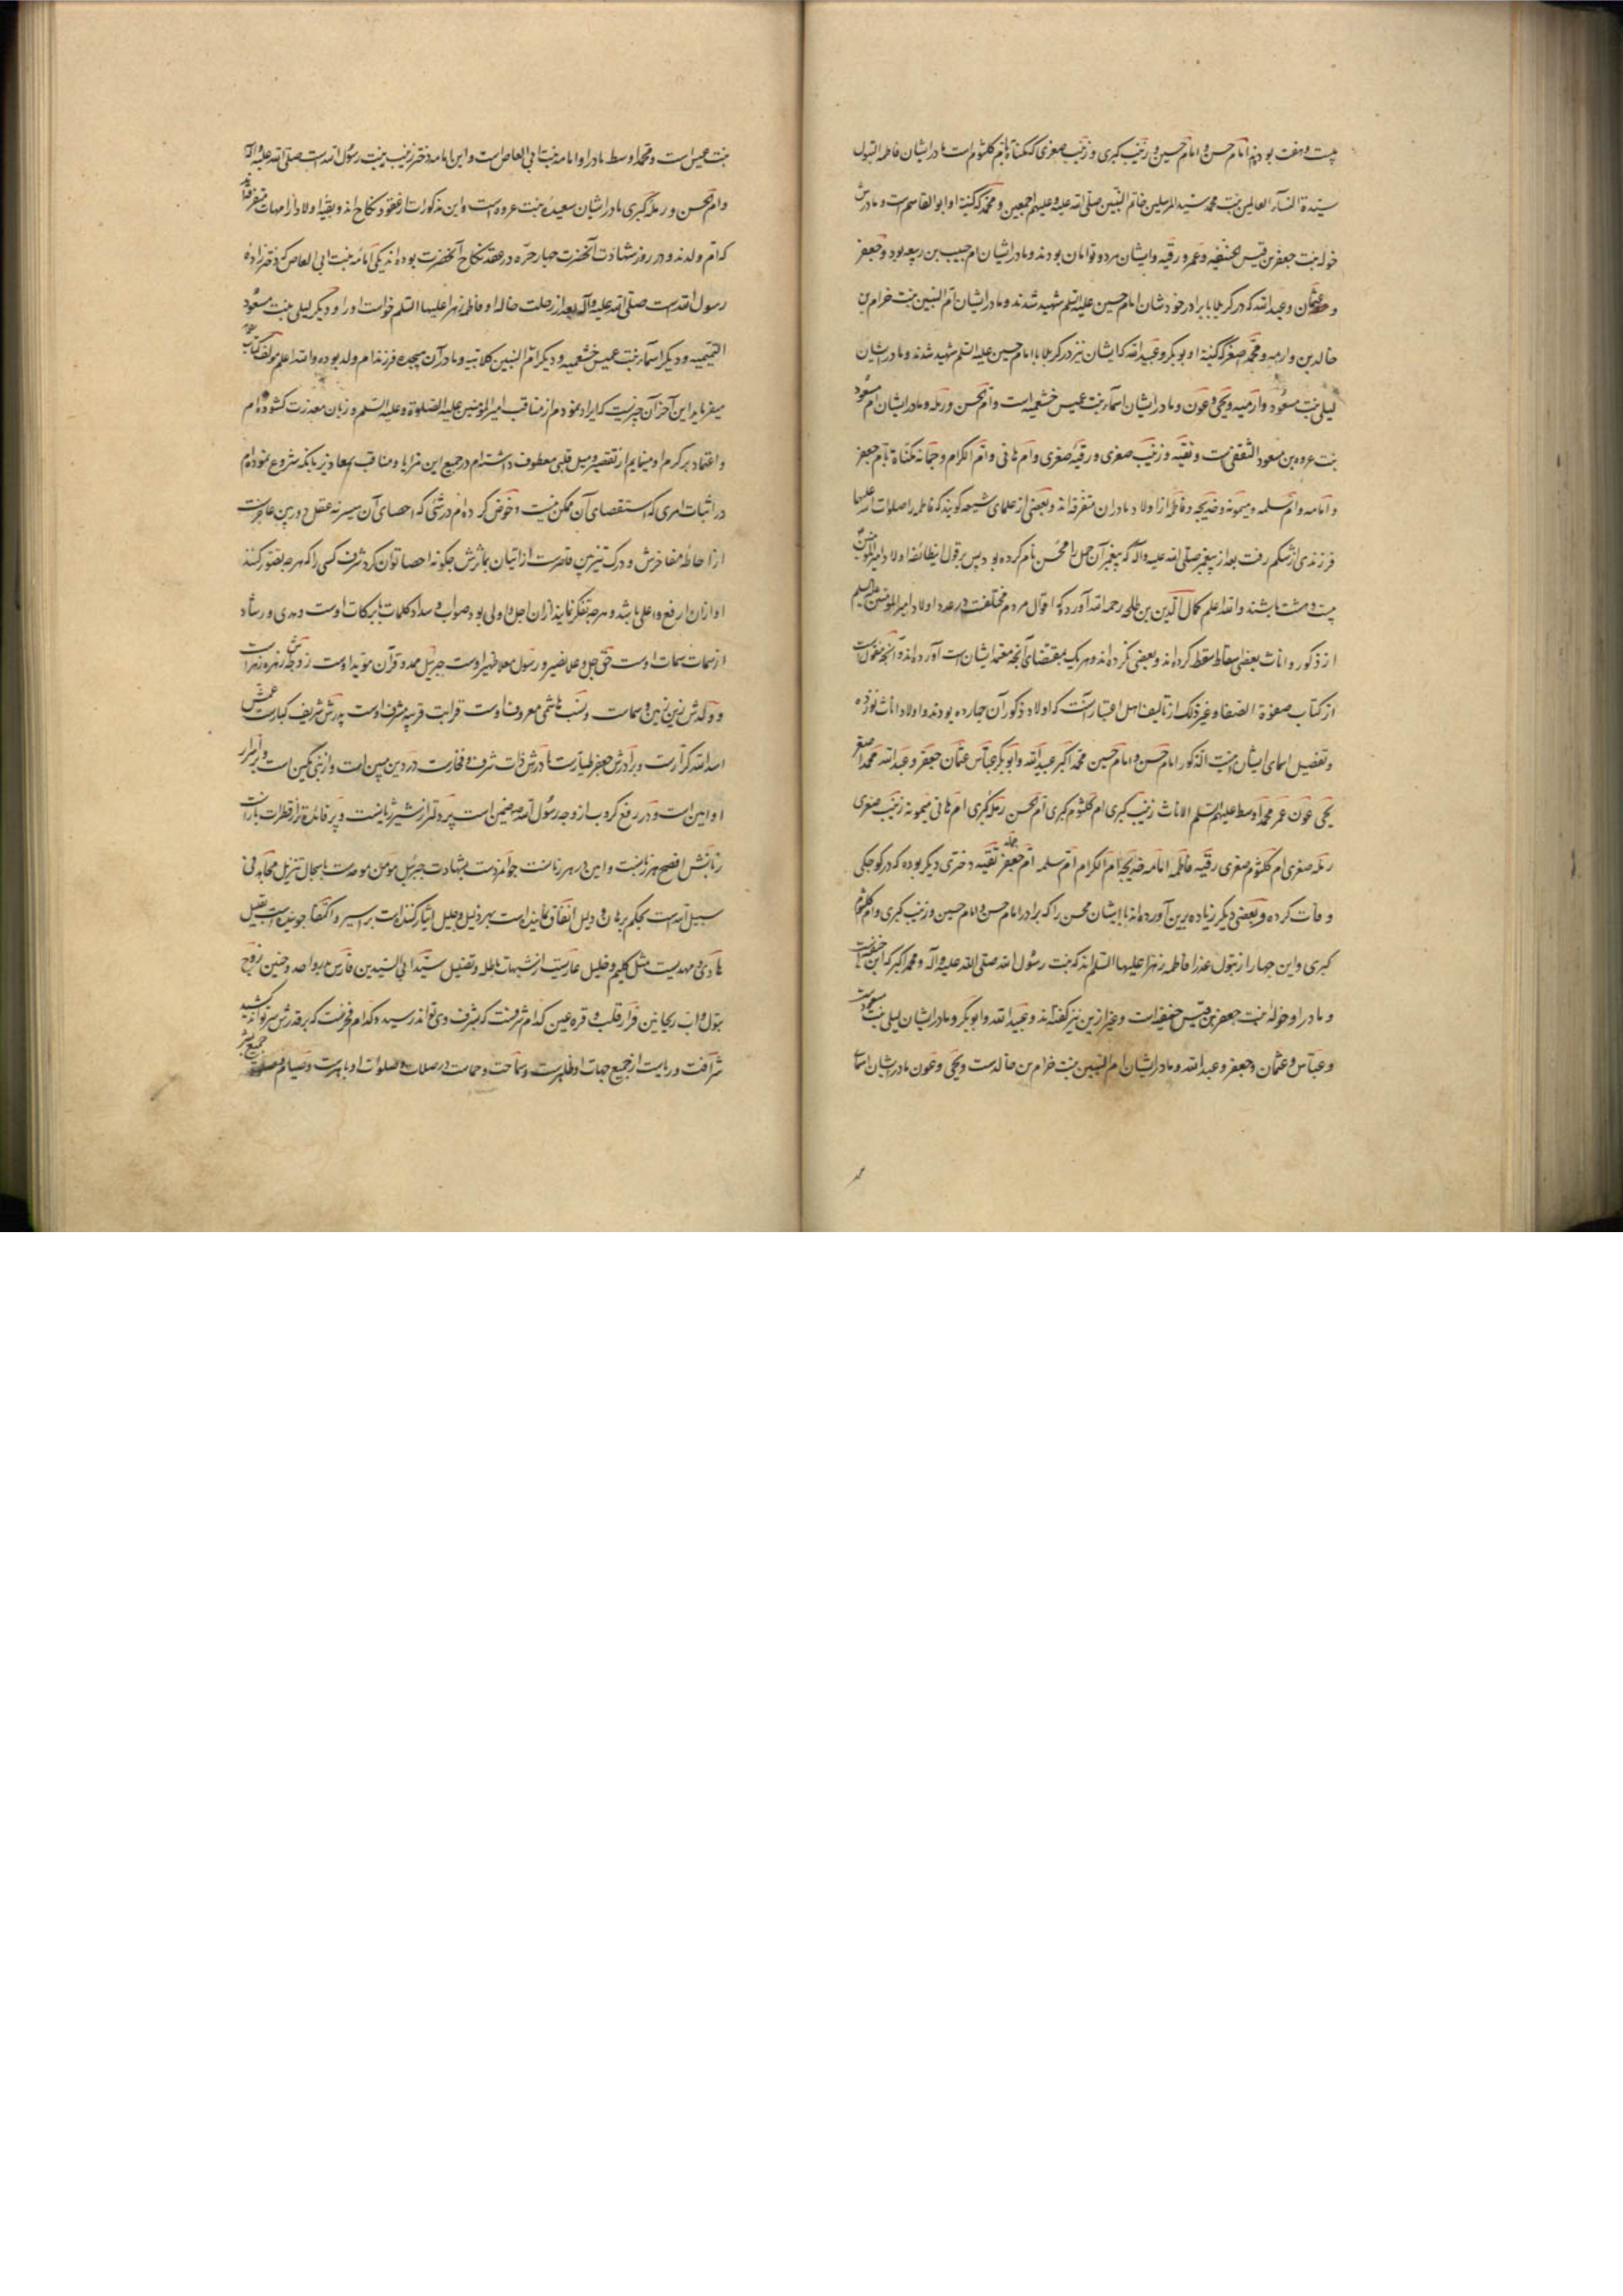 بیست و هفت بودند امام حسن و امام حسین و زینب کبری و زینب صغری که مکناة بام کلثوم است مادر ایشان فاطمه البتول
سیدة النساء العالمین بنت محمد سید المرسلین خاتم النبیین صلی الله علیه و علیهم اجمعین و محمد که کنیة او ابو القاسم است و مادرش
خوله بنت جعفر بن قیس الحنفیه و عمر و رقیه و ایشان هر دو توامان بودند و مادر ایشان ام حبیب بن ربیعه بود و جعفر
و عثمان و عبد الله که در کربلا با برادر خودشان امام حسین علیه السلم شهید شدند و مادر ایشان ام النبیین بنت خرام بن
خالد بن وارمه و محمد اصغر که کنیة او ابو بکر و عبید الله که ایشان نیز در کربلا با امام حسین علیه السلم شهید شدند و مادر ایشان
لیلی بنت مسعود وارمیه و یحیی و عون و مادر ایشان اسماء بنت عمیس خثعمیه است و ام الحسن و رمله و مادر ایشان ام مسعود
بنت عروه بن مسعود الثقفی است و نفیه و زینب صغری و رقیه صغری و ام هانی و ام الکرام و جمانه مکناة بام جعفر
و امامه و ام سلمه و میمونه و خدیجه و فاطمه از اولاد مادران متفرقه اند و بعضی از علمای شیعه گویند که فاطمه را صلوات الله علیها
فرزندی از شکم رفت بعد از پیغمبر صلی الله علیه و اله که پیغمبر آن حمل را محسن نام کرده بود پس بر قول این طائفه اولاد امیر المومنین
بیست و هشت باشند و الله اعلم کمال الدین بن طلحه رحمه الله آورده که اقوال مردم مختلفست در عدد اولاد امیر المومنین علیه السلم
از ذکور و اناث بعضی اسقاط سقط کرده اند و بعضی نکرده اند و هر یک بمقتضای آنچه معتمد ایشان است آورده اند و آنچه منقول است
از کتاب صفوة الصفا و غیر ذلک از تالیف اهل اعتبار آنست که اولاد ذکور آن چهارده بودند و اولاد اناث نوزده
و تفصیل اسمای ایشان اینست الذکور امام حسن و امام حسین محمد اکبر عبید الله و ابو بکر عباس عثمان جعفر و عبد الله محمد اصغر
یحیی عون عمر محمد اوسط علیهم السلم الاناث زینب کبری ام کلثوم کبری ام الحسن رمله کبری ام هانی میمونه زینب صغری
رمله صغری ام کلثوم صغری رقیه فاطمه امامه خدیجه ام الکرام ام سلمه ام جعفر جمانه نفیه دختری دیگر بوده که در کوچکی
وفات کرده و بعضی دیگر زیاده برین آورده اند با ایشان محسن را که برادر امام حسن و امام حسین و زینب کبری و ام کلثوم
کبری و این چهار از بتول عذرا فاطمه زهرا علیها السلم اند که بنت رسول الله صلی الله علیه و آله و محمد اکبر که ابن حنفیه است
و مادر او خوله بنت جعفر بن قیس حنفیه است و غیر ازین نیز گفته اند و عبید الله و ابو بکر و مادر ایشان لیلی بنت مسعود است
و عباس و عثمان و جعفر و عبد الله و مادر ایشان ام النبیین بنت خرام بن خالدست و یحیی و عون مادر ایشان اسما
بنت عمیس است و محمد اوسط مادر او امامه بنت ابی العاص است و این امامه دختر زینب بنت رسول الله است صلی الله علیه و اله
و ام الحسن و رمله کبری مادر ایشان سعیده بنت عروه است و این مذکورات از عقود نکاح اند و بقیه اولاد از امهات متفرقه اند
که ام ولدند و در روز شهادت آنحضرت چهار حره در عقد نکاح آنحضرت بوده اند یکی امامه بنت ابی العاص که دختر زاده
رسول الله است صلی الله علیه و آله بعد از رحلت خاله او فاطمه زهرا علیها السلم خواست او را و دیگر لیلی بنت مسعود
التمیمیه و دیگر اسماء بنت عمیس خثعمیه و دیگر ام النبیین کلابیه و مادر آن هیجده فرزند ام ولد بوده و الله اعلم مولف کتاب
میفرماید این آخر آن چیزیست که ایراد نمودم از مناقب امیر المومنین علیه الصلوة و علیه السلم و زبان معذرت گشوده ام
و اعتماد بر کرم او مینمایم از تقصیر و میل قلبی معطوف داشته ام در جمیع این مزایا و مناقب بمعاذیر بانکه شروع نموده ام
در اثبات امری که استقصای آن ممکن نیست و خوض کرده ام در شئی که احصای آن میسر نه عقل دوربین عاجزست
از احاطه مفاخرش و درک تیزبین قاصرست از اتیان بمآثرش چگونه احصا توان کرد شرف کسی را که هر چه تصور کنند
او از ان ارفع و اعلی باشد و هر چه تفکر نماید از ان اجل و اولی بود صواب و سداد کلمات بابرکات اوست و هدی و رشاد
از سمات سمات اوست حق جل و علا نصیر و رسول معلا ظهیر اوست جبریل ممد و قرآن موید اوست زوجه اش زهره زهراست
و ولدش زین زمین و سمات و نسب هاشمی معروف اوست قرابت قریبه مشرف اوست پدرش شریف کبارست عمش
اسد الله کرارست و برادرش جعفر طیارست مادرش ذات شرف و فخارست در دین مبین است و از نبی مکین است و بر اسرار
او امین است و در رفع کروب از وجه رسول الله ضمین است پر دلتر از شیر ژیانست و پر فائده تر از قطرات بارانست
زبانش افصح هر زبانست و امین در هر زمانست جوانمردست بشهادت جبرئیل مومن موحدست با سجال تنزیل مجاهد فی
سبیل الله است بحکم برهان و دلیل انفاق نماینده است بهر ذلیل و علیل ایثار کننده است بر اسیر و اکتفا جوینده است بقلیل
هادی و مهدیست مثل کلیم و خلیل عاریست از شبهات باطله و تضلیل سیدا ابی السیدین فارس بدر و احد و حنین زوج
بتول و اب ریحانتین قرار قلب و قره عین کدام شرفست که بشرف وی تواند رسید و کدام فخرست که بر قدرش سر تواند کشید
شرافت و ریاست از جمیع جهات او ظاهرست و سماحت و حماست در صلات و صلوات او باهرست و صیام